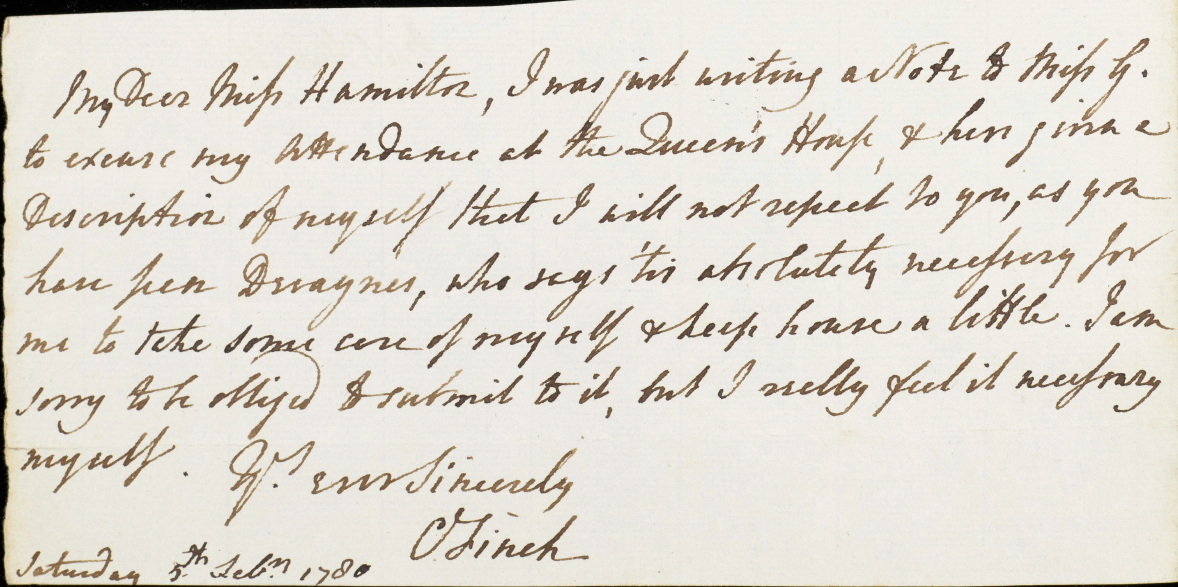 My Dear Miss Hamilton, I was just writing a Note to Miss G.
to excuse my Attendance at the Queen's House, & have given a
Description of myself that I will not repeat to you, as you
have seen Devaynes, who says 'tis absolutely necessary for
me to take some care of myself & keep house a little. I am
sorry to be obliged to submit to it, but I really feel it necessary
myself. Yrs. ever Sincerely
C Finch
Saturday 5th. Febry. 1780